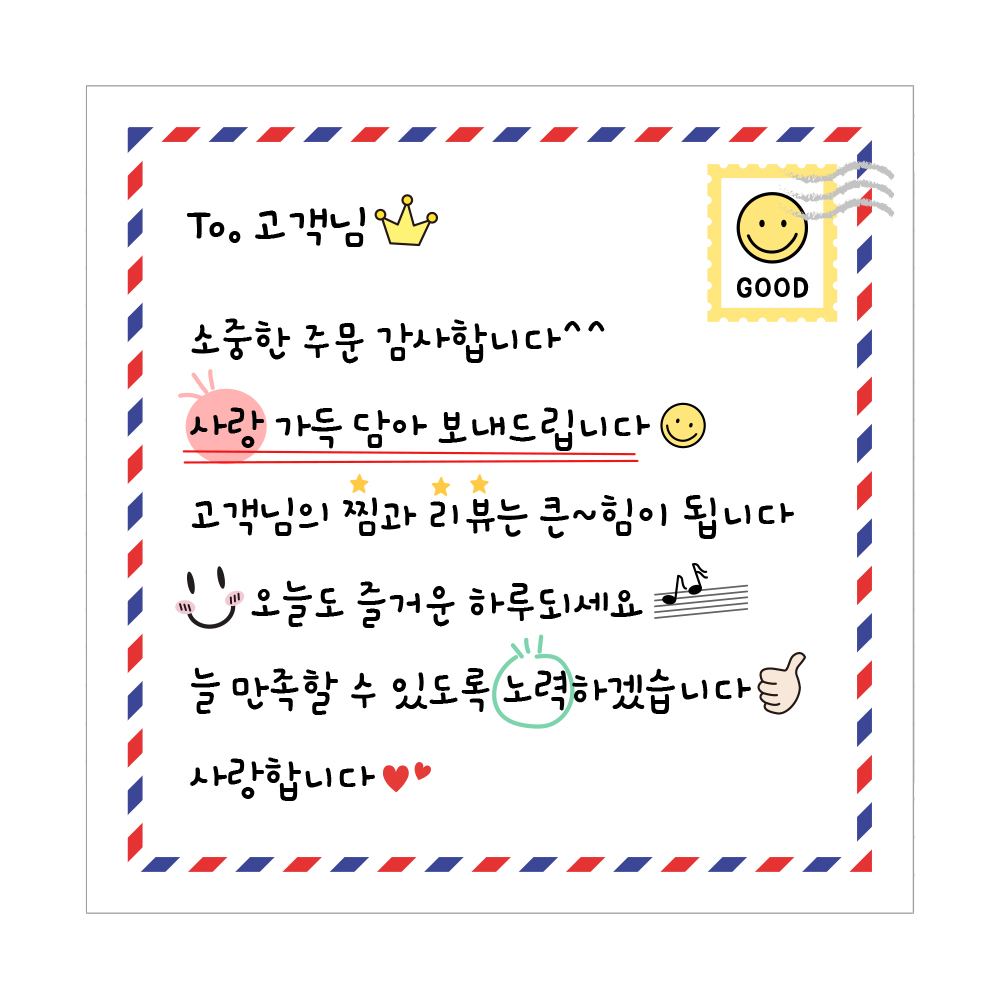 To. 고객님
GOOD
소중한 주문 감사합니다^^
사랑 가득 담아 보내드립니다
고객님의 찜과 리뷰는 큰~힘이 됩니다
오늘도 즐거운 하루되세요
늘 만족할 수 있도록 노력하겠습니다
사랑합니다